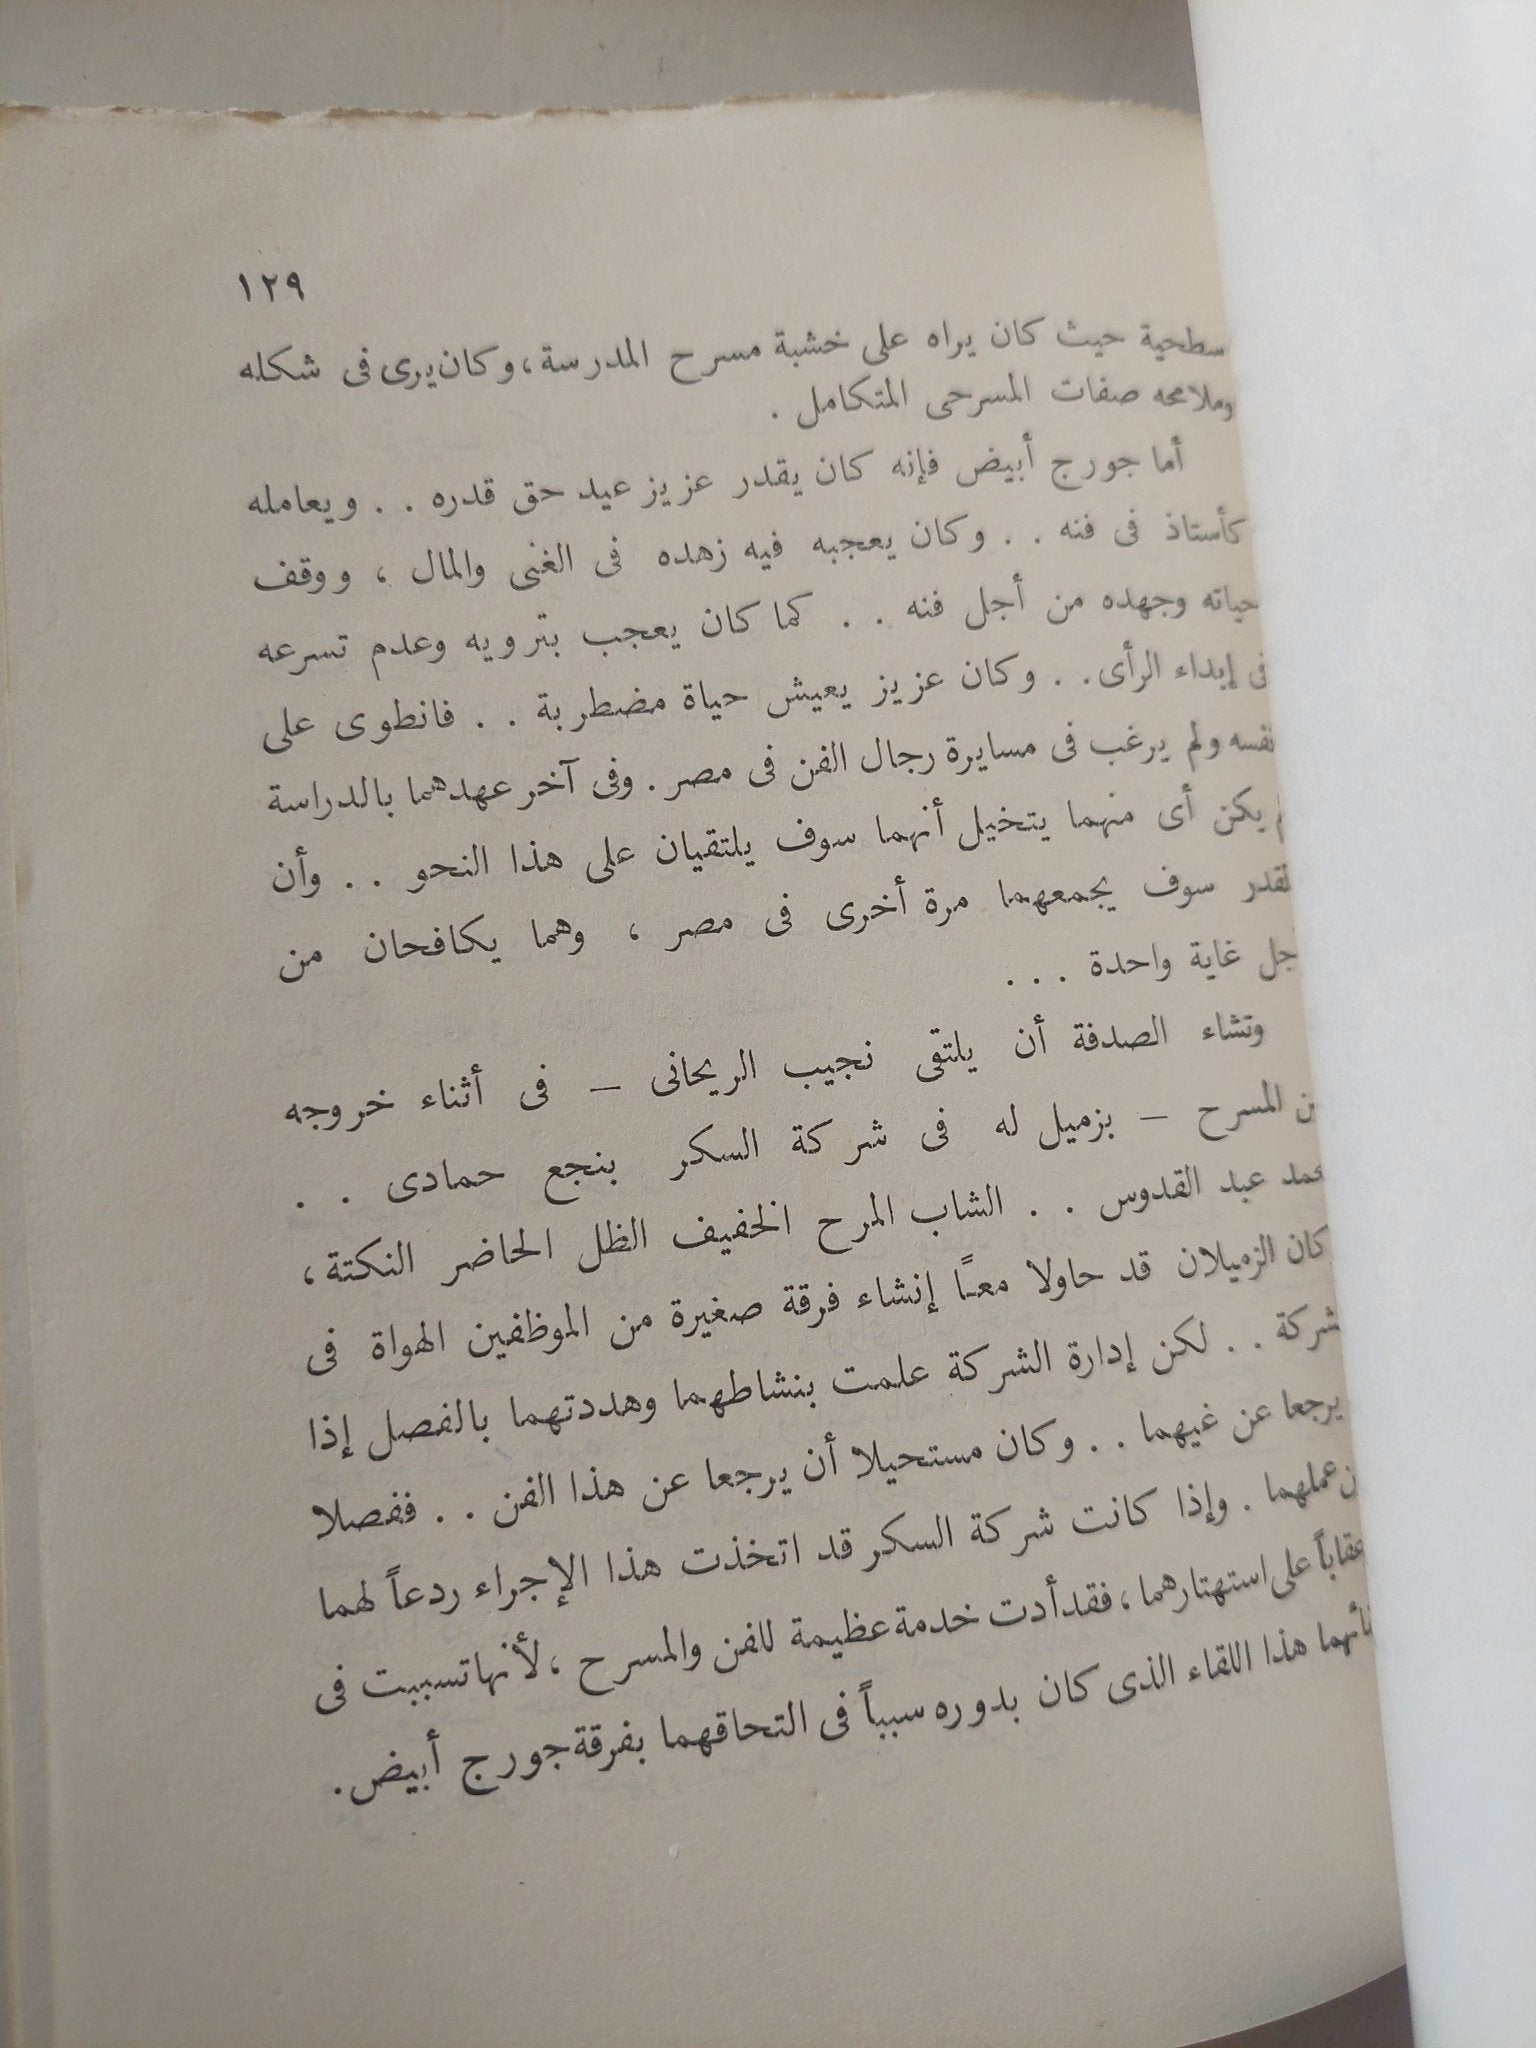 ١٢٩
سطحية حيث كان يراه على خشبة مسرح المدرسة، وكان يرى فى شكله
وملامحه صفات المسرحى المتكامل .
أما جورج أبيض فإنه كان يقدر عزيز عيد حق قدره . . ويعامله
كأستاذ فى فنه . . وكان يعجبه فيه زهده فى الغنى والمال ، ووقف
حياته وجهده من أجل فنه . . كما كان يعجب بترويه وعدم تسرعه
فى إبداء الرأى . . وكان عزيز يعيش حياة مضطربة . . فانطوى على
نفسه ولم يرغب فى مسايرة رجال الفن فى مصر . وفى آخر عهدهما بالدراسة
يكن أى منهما يتخيل أنهما سوف يلتقيان على هذا النحو . . وأن
القدر سوف يجمعهما مرة أخرى فى مصر ، وهما يكافحان من
أجل غاية واحدة . . .
وتشاء الصدفة أن يلتقى نجيب الريحانى – فى أثناء خروجه
من المسرح – بزميل له فى شركة السكر بنجع حمادى . .
محمد عبد القدوس . . الشاب المرح الخفيف الظل الحاضر النكتة ،
وكان الزميلان قد حاولا معاً إنشاء فرقة صغيرة من الموظفين الهواة فى
الشركة . . لكن إدارة الشركة علمت بنشاطهما وهددتهما بالفصل إذا
يرجعا عن غيهما . . وكان مستحيلا أن يرجعا عن هذا الفن . . ففصلا
من عملهما . وإذا كانت شركة السكر قد اتخذت هذا الإجراء ردعاً لهما
عقاباً على استهتارهما ، فقد أدت خدمة عظيمة للفن والمسرح ، لأنها تسببت فى
هذا اللقاء الذى كان بدوره سبباً فى التحاقهما بفرقة جورج أبيض .